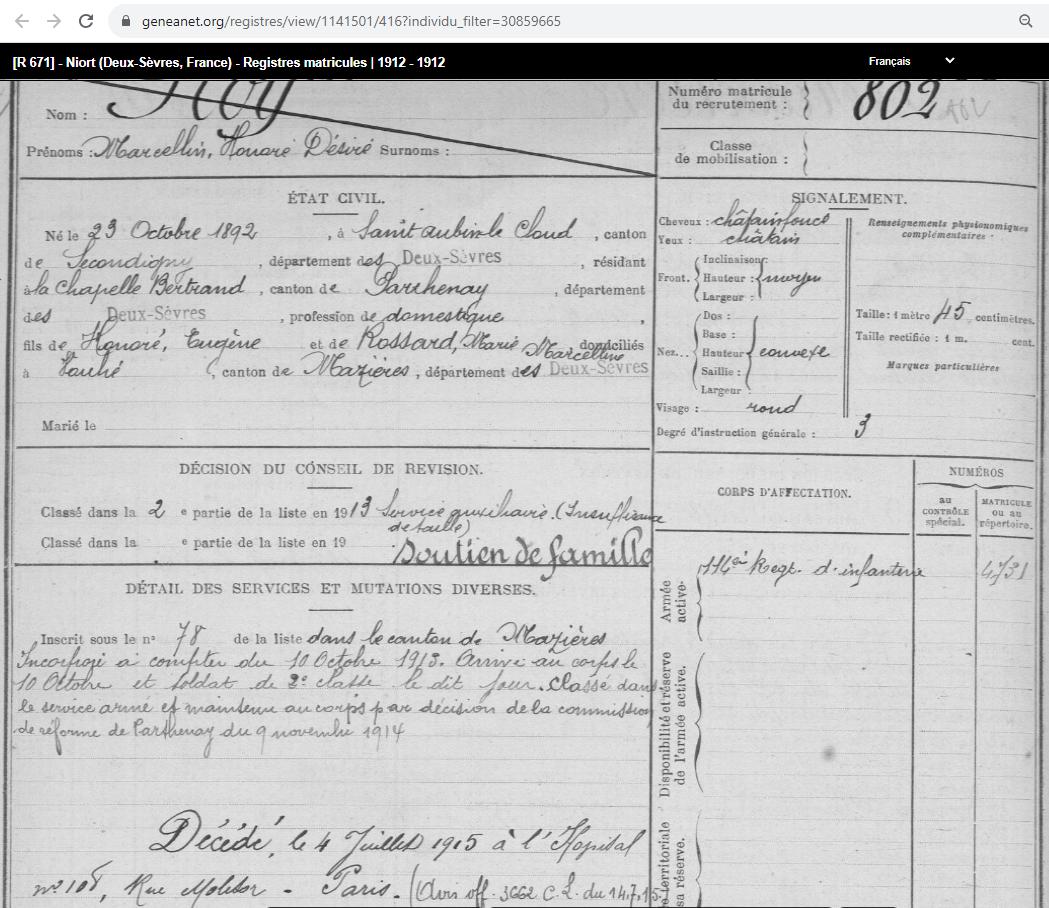 geneanet.org/registres/view/1141501/416?individu_filter=30859665
[R 671] - Niort (Deux-Sèvres, France) - Registres matricules | 1912 - 1912
Français
Nom :
Prénoms : Marcellin, Honoré Désiré Surnoms :
Numéro matricule
du recrutement : 802
Classe
de mobilisation :
ÉTAT CIVIL.
Né le 23 Octobre 1892, à Saint aubin le Cloud, canton
de Secondigny, département des Deux-Sèvres, résidant
à la Chapelle Bertrand, canton de Parthenay, département
des Deux-Sèvres, profession de domestique,
fils de Honoré, Eugène et de Rossard, Marie Marcelline domiciliés
à Vouhé, canton de Mazières, département des Deux-Sèvres
Marié le
SIGNALEMENT.
Cheveux : châtain foncé
Yeux : châtain
Front. Inclinaison :
Hauteur : moyen
Largeur :
Nez... Dos :
Base :
Hauteur convexe
Saillie :
Largeur
Visage : rond
Degré d'instruction générale : 3
Renseignements physionomiques
complémentaires :
Taille : 1 mètre 45 centimètres.
Taille rectifiée : 1 m. cent.
Marques particulières
DÉCISION DU CONSEIL DE REVISION.
Classé dans la 2 e partie de la liste en 1913 Service auxiliaire. (Insuffisance
de taille)
Classé dans la e partie de la liste en 19
Soutien de famille
DÉTAIL DES SERVICES ET MUTATIONS DIVERSES.
Inscrit sous le n° 78 de la liste dans le canton de Mazières
Incorporé à compter du 10 Octobre 1913. Arrivé au corps le
10 Octobre et soldat de 2e classe le dit jour. Classé dans
le service armé et maintenu au corps par décision de la commission
de réforme de Parthenay du 9 novembre 1914
Décédé, le 4 Juillet 1915 à l'Hôpital
n° 108, Rue Molitor - Paris. (Avis off. 3662 C.L. du 14.7.15
CORPS D'AFFECTATION.
NUMÉROS
au
CONTRÔLE
spécial.
MATRICULE
ou au
répertoire.
Armée
active.
114e Regt. d'infanterie 4731
Disponibilité et réserve
de l'armée active.
territoriale
sa réserve.